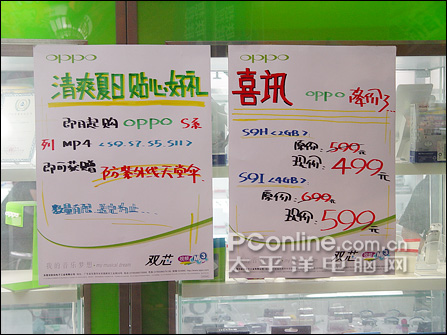 oppo
清爽夏日 贴心好礼
即日起购 oppo S系
列 MP4 <S9. S7. S5. S11>
即可获赠 防紫外线天堂伞
数量有限 送完为止...
双芯
oppo
喜讯 oppo 降价了
S9H <2GB>
原价: 599元
现价: 499元
S9I <4GB>
原价: 699元
现价: 599元
双芯
PConline.com.cn
太平洋电脑网